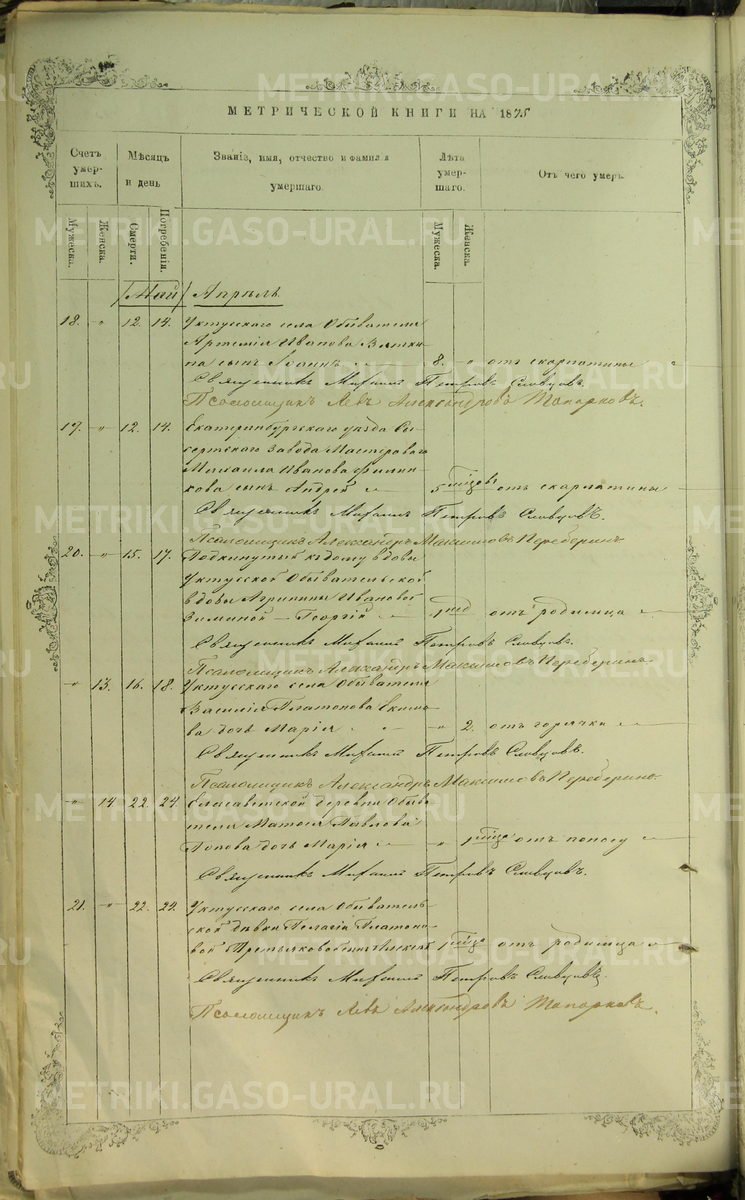 МЕТРИЧЕСКОЙ КНИГИ НА 1875
Счетъ умер- шихъ.
Мѣсяцъ и день
Званіе, имя, отчество и фамилія умершаго.
Лѣта умер- шаго.
Отъ чего умеръ.
Мужеска.
Женска.
Смерти.
Погребенія.
Мужеска.
Женска.
/Май/ Апрѣль
18. " 12. 14. Уктусскаго села Обывателя
Артемія Иванова Вятки-
на сынъ Іоаннъ 8. " отъ скарлатины
Священникъ Михаилъ Петровъ Словцовъ.
Псаломщикъ Левъ Александровъ Топорковъ.
" 12. 14. Екатеринбургскаго уѣзда Сы-
сертскаго Завода Мастероваго
Михаила Иванова
кова сынъ Андрей 5 мѣсяцовъ отъ скарлатины
Священникъ Михаилъ Петровъ Словцовъ.
Псаломщикъ Александръ Максимовъ Переберинъ
20. " 15. 17. Подкинутый къ дому вдовы
Уктусской Обывательской
вдовы Агрипины Ивановой
Зиминой - Георгій 1 нед отъ родимца
Священникъ Михаилъ Петровъ Словцовъ.
Псаломщикъ Александръ Максимовъ Переберинъ
" 13. 16. 18. Уктусскаго села Обывателя
Василія Платонова Екимо-
ва дочь Марія " 2. отъ горячки
Священникъ Михаилъ Петровъ Словцовъ.
Псаломщикъ Александръ Максимовъ Переберинъ
" 14 22. 24. Елисаветской деревни Обыва-
теля Павлова
Попова дочь Марія " 1 мѣсяца отъ поносу
Священникъ Михаилъ Петровъ Словцовъ.
21. " 22. 24. Уктусскаго села Обыватель-
ской дѣвки Пелагіи Платоно-
вой сынъ Алексѣй 1 мѣсяца отъ родимца
Священникъ Михаилъ Петровъ Словцовъ
Псаломщикъ Левъ Александровъ Топорковъ.
METRIKI.GASO-URAL.RU